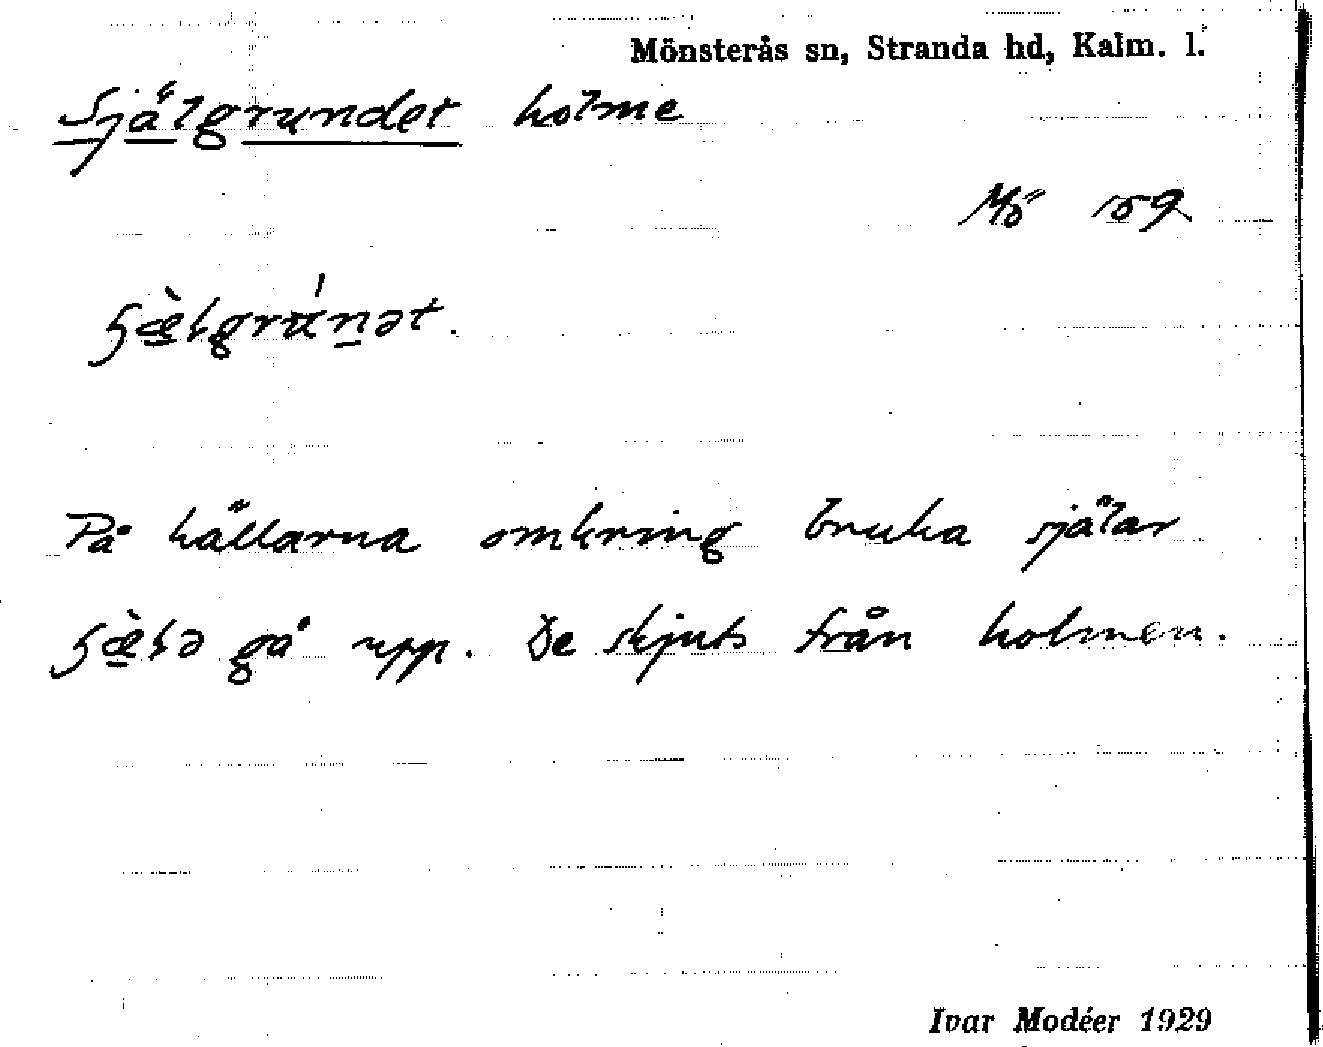 Mönsterås sn, Stranda hd, Kalm. l.
Själgrundet holme
Mö 159
På hällarna omkring bruka själar
gå upp. De skjuts från holmen.
Ivar Modéer 1929